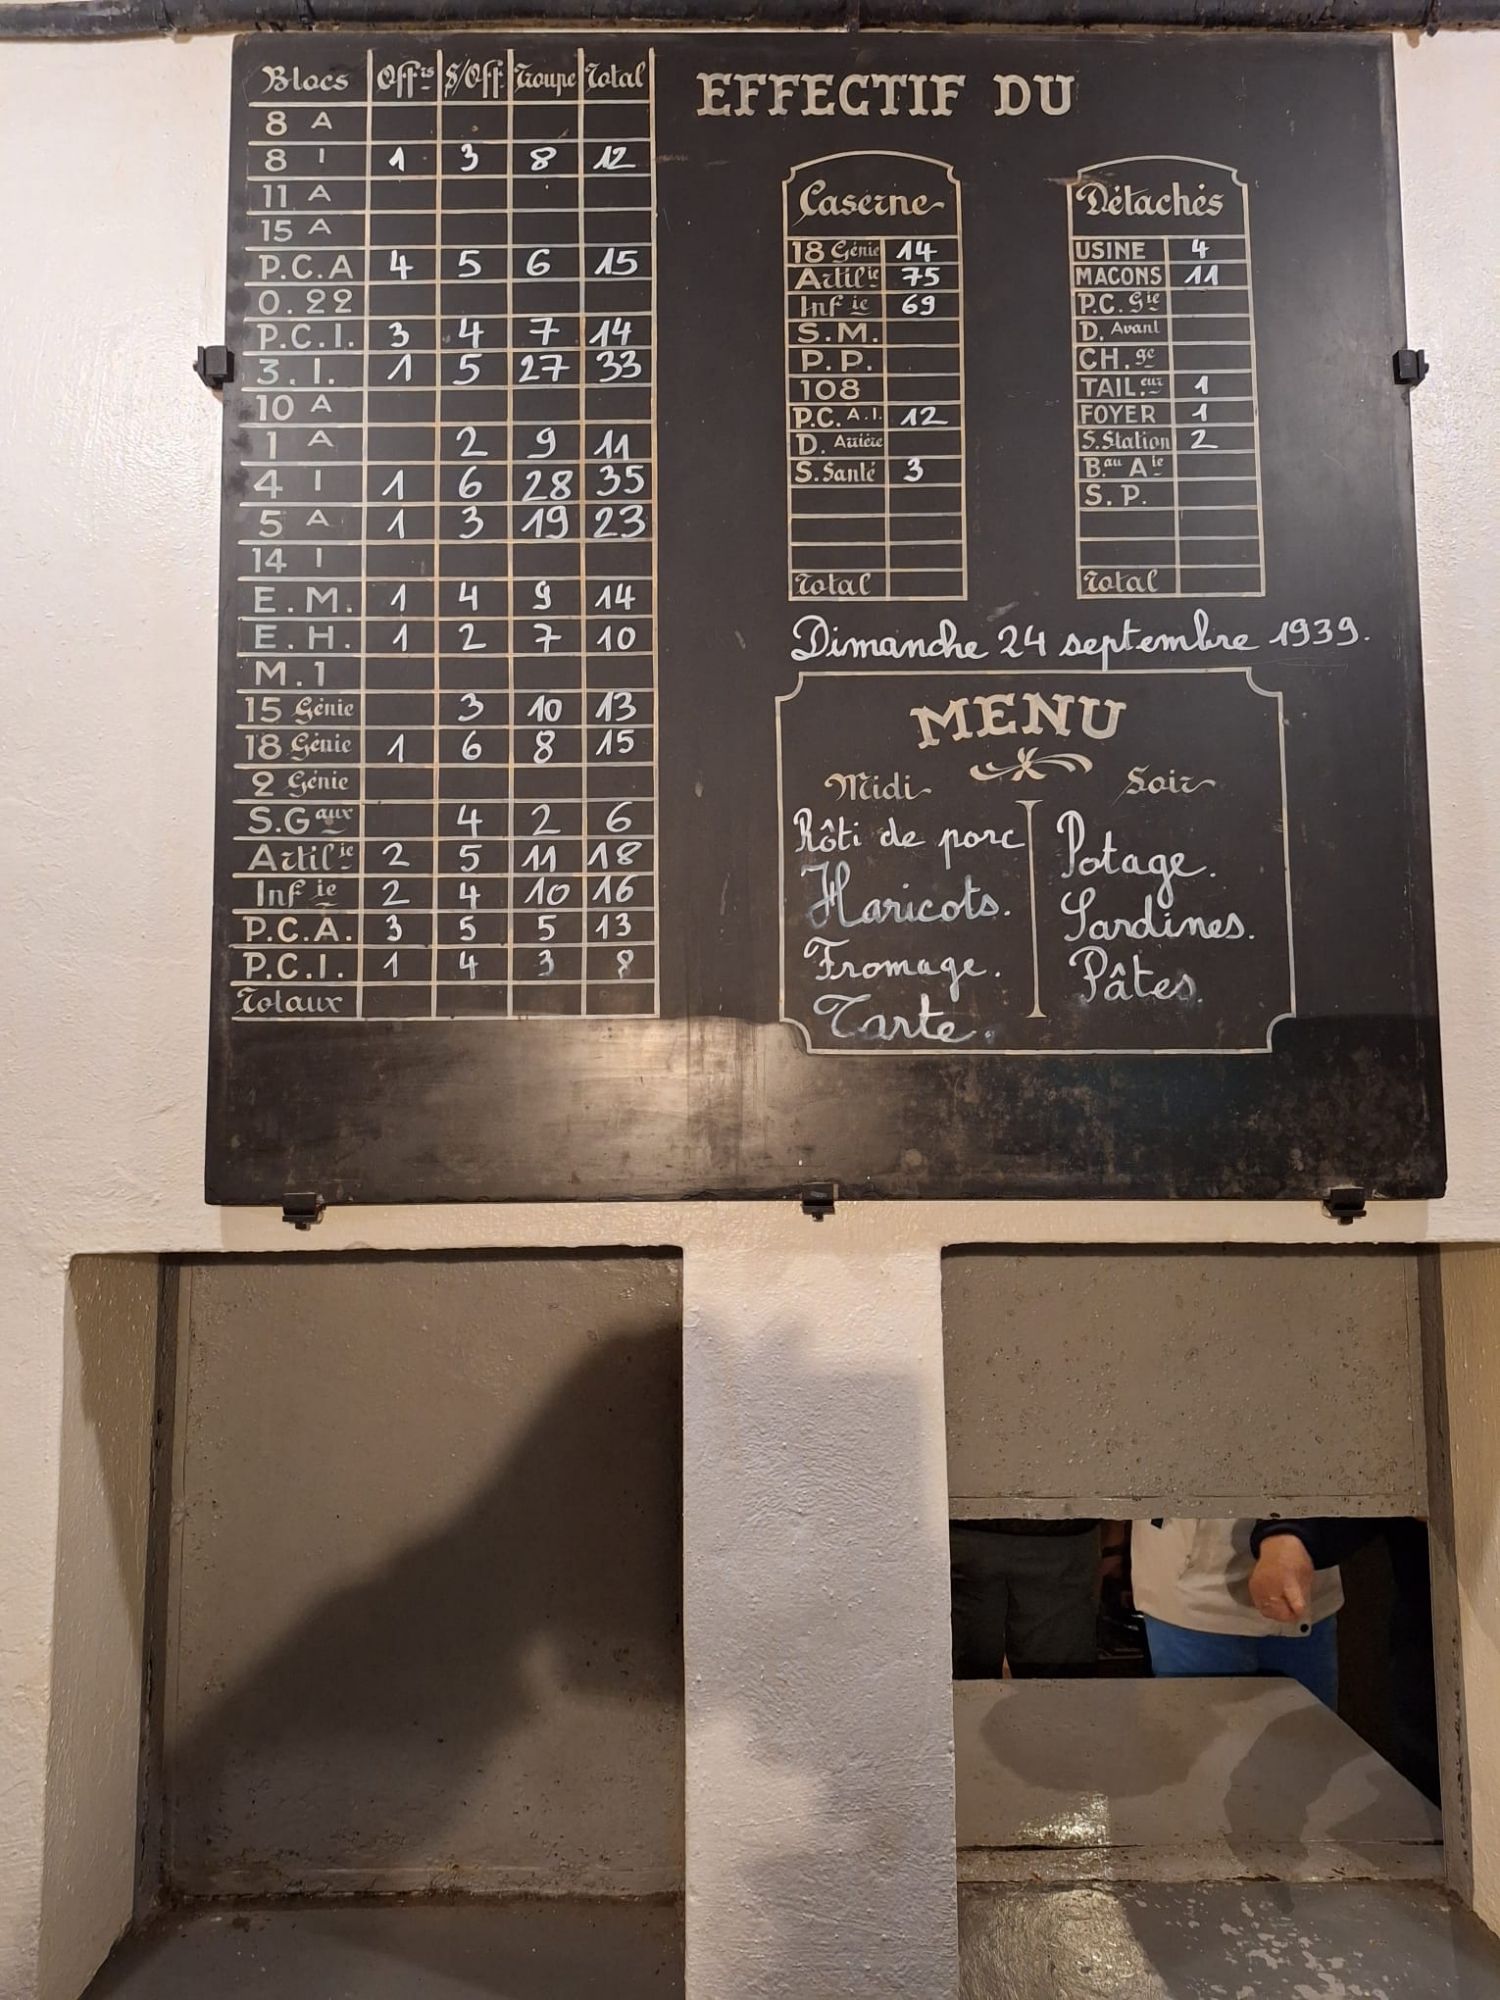 Blocs Offrs S/Off Troupe Total
8 A
8 I 1 3 8 12
11 A
15 A
P.C.A 4 5 6 15
O.22
P.C.I. 3 4 7 14
3. I. 1 5 27 33
10 A
1 A 2 9 11
4 I 1 6 28 35
5 A 1 3 19 23
14 I
E.M. 1 4 9 14
E.H. 1 2 7 10
M.1
15 Génie 3 10 13
18 Génie 1 6 8 15
2 Génie
S.Gaux 4 2 6
Artilie 2 5 11 18
Infie 2 4 10 16
P.C.A. 3 5 5 13
P.C.I. 1 4 3 8
Totaux
EFFECTIF DU
Caserne
18 Génie 14
Artilie 75
Infie 69
S.M.
P.P.
108
P.C. A.I. 12
D. Arrière
S. Santé 3
Total
Détachés
USINE 4
MACONS 11
P.C. Gie
D. Avant
CH. ge
TAIL. eur 1
FOYER 1
S. Station 2
Bau Aie
S.P.
Total
Dimanche 24 septembre 1939.
MENU
Midi
Rôti de porc
Haricots.
Fromage.
Tarte.
Soir
Potage.
Sardines.
Pâtes.